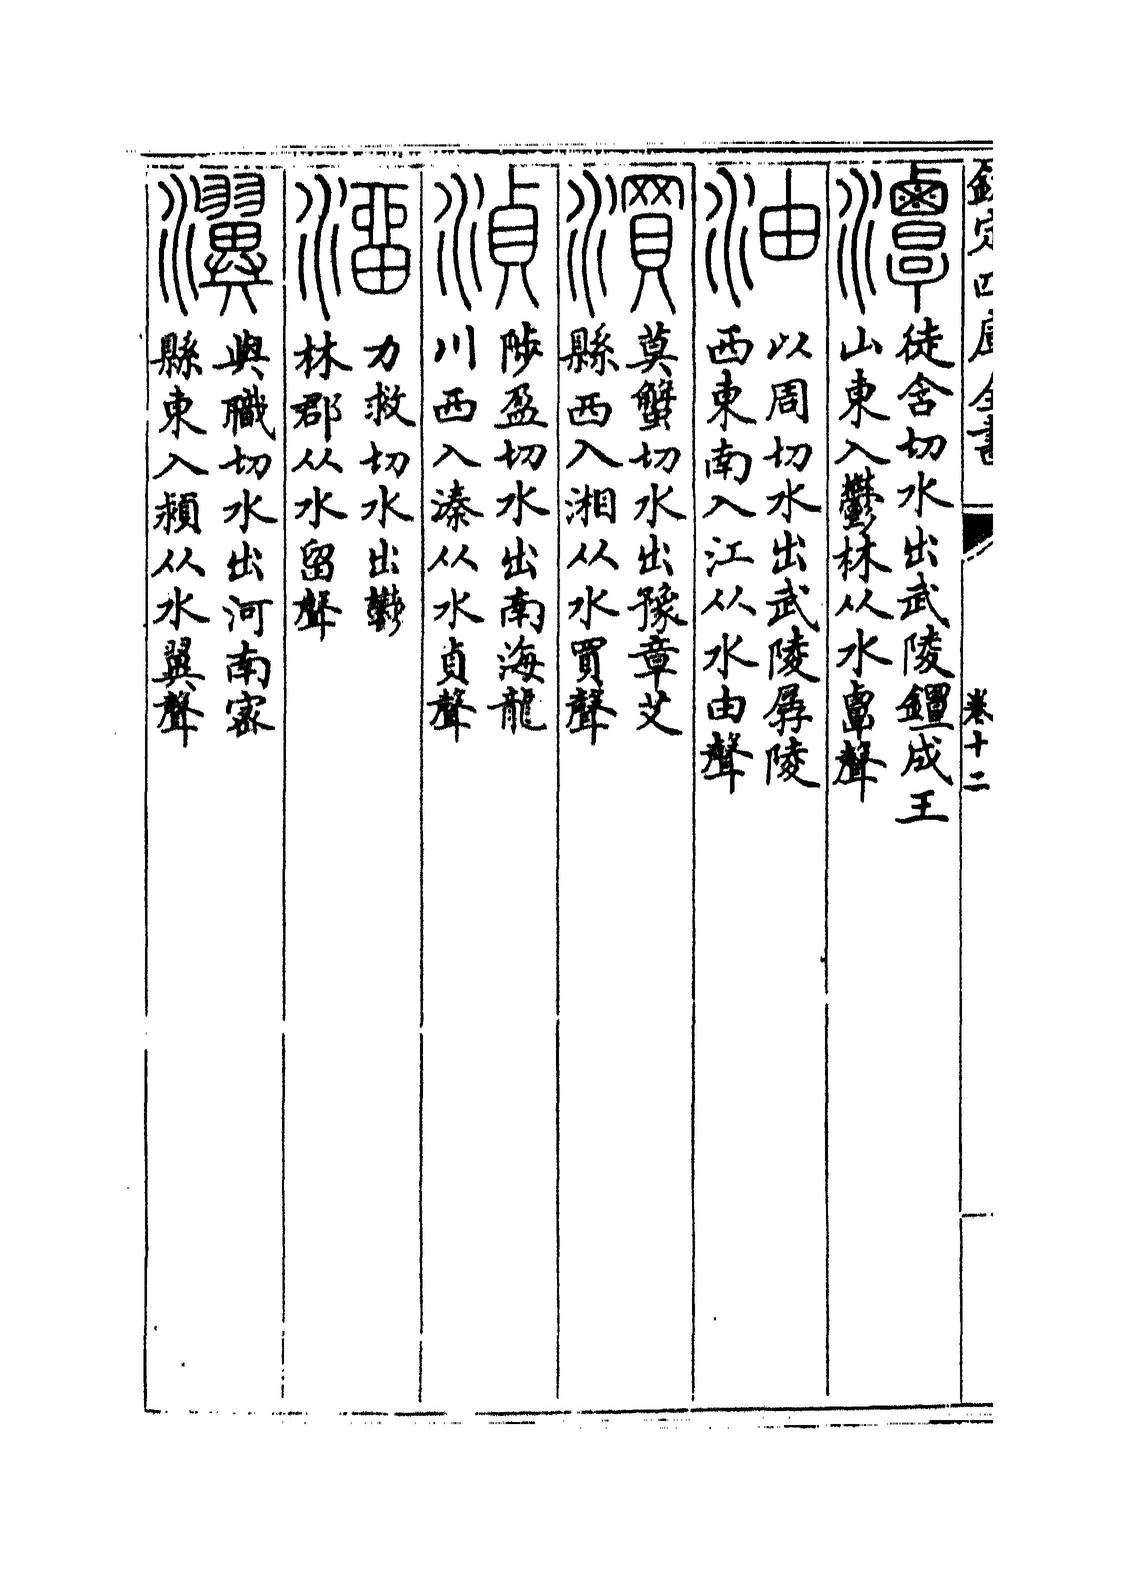 欽定四庫全書
卷十二
潭
徒含切水出武陵鐔成王
山東入鬱林从水覃聲
油
以周切水出武陵孱陵
西東南入江从水由聲
潣
莫蟹切水出豫章艾
縣西入湘从水買聲
湞
陟盈切水出南海龍
川西入溱从水貞聲
溜
力救切水出鬱
林郡从水留聲
瀷
與職切水出河南密
縣東入潁从水翼聲